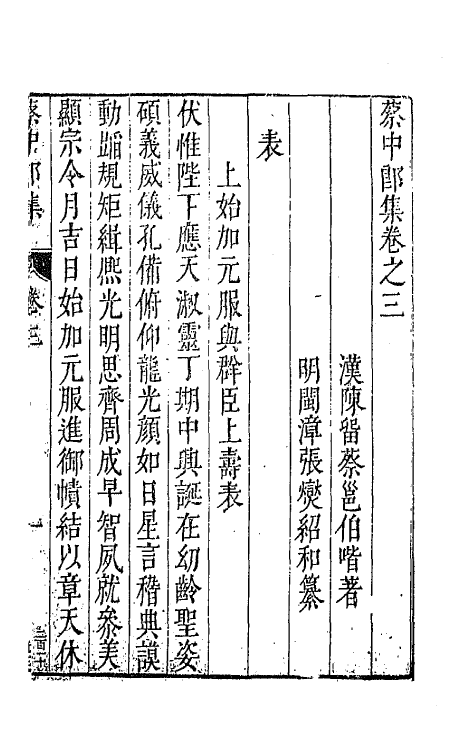 蔡中郎集卷之三
漢陳留蔡邕伯喈著
明閩漳張燮紹和纂
表
上始加元服與群臣上壽表
伏惟陛下應天淑靈丁期中興誕在幼齡聖姿
碩義威儀孔備俯仰龍光顔如日星言稽典謨
動蹈規矩緝熈光明思齊周成早智夙就叅美
顯宗令月吉日始加元服進御幘結以章天休
蔡中郎集
卷三
一